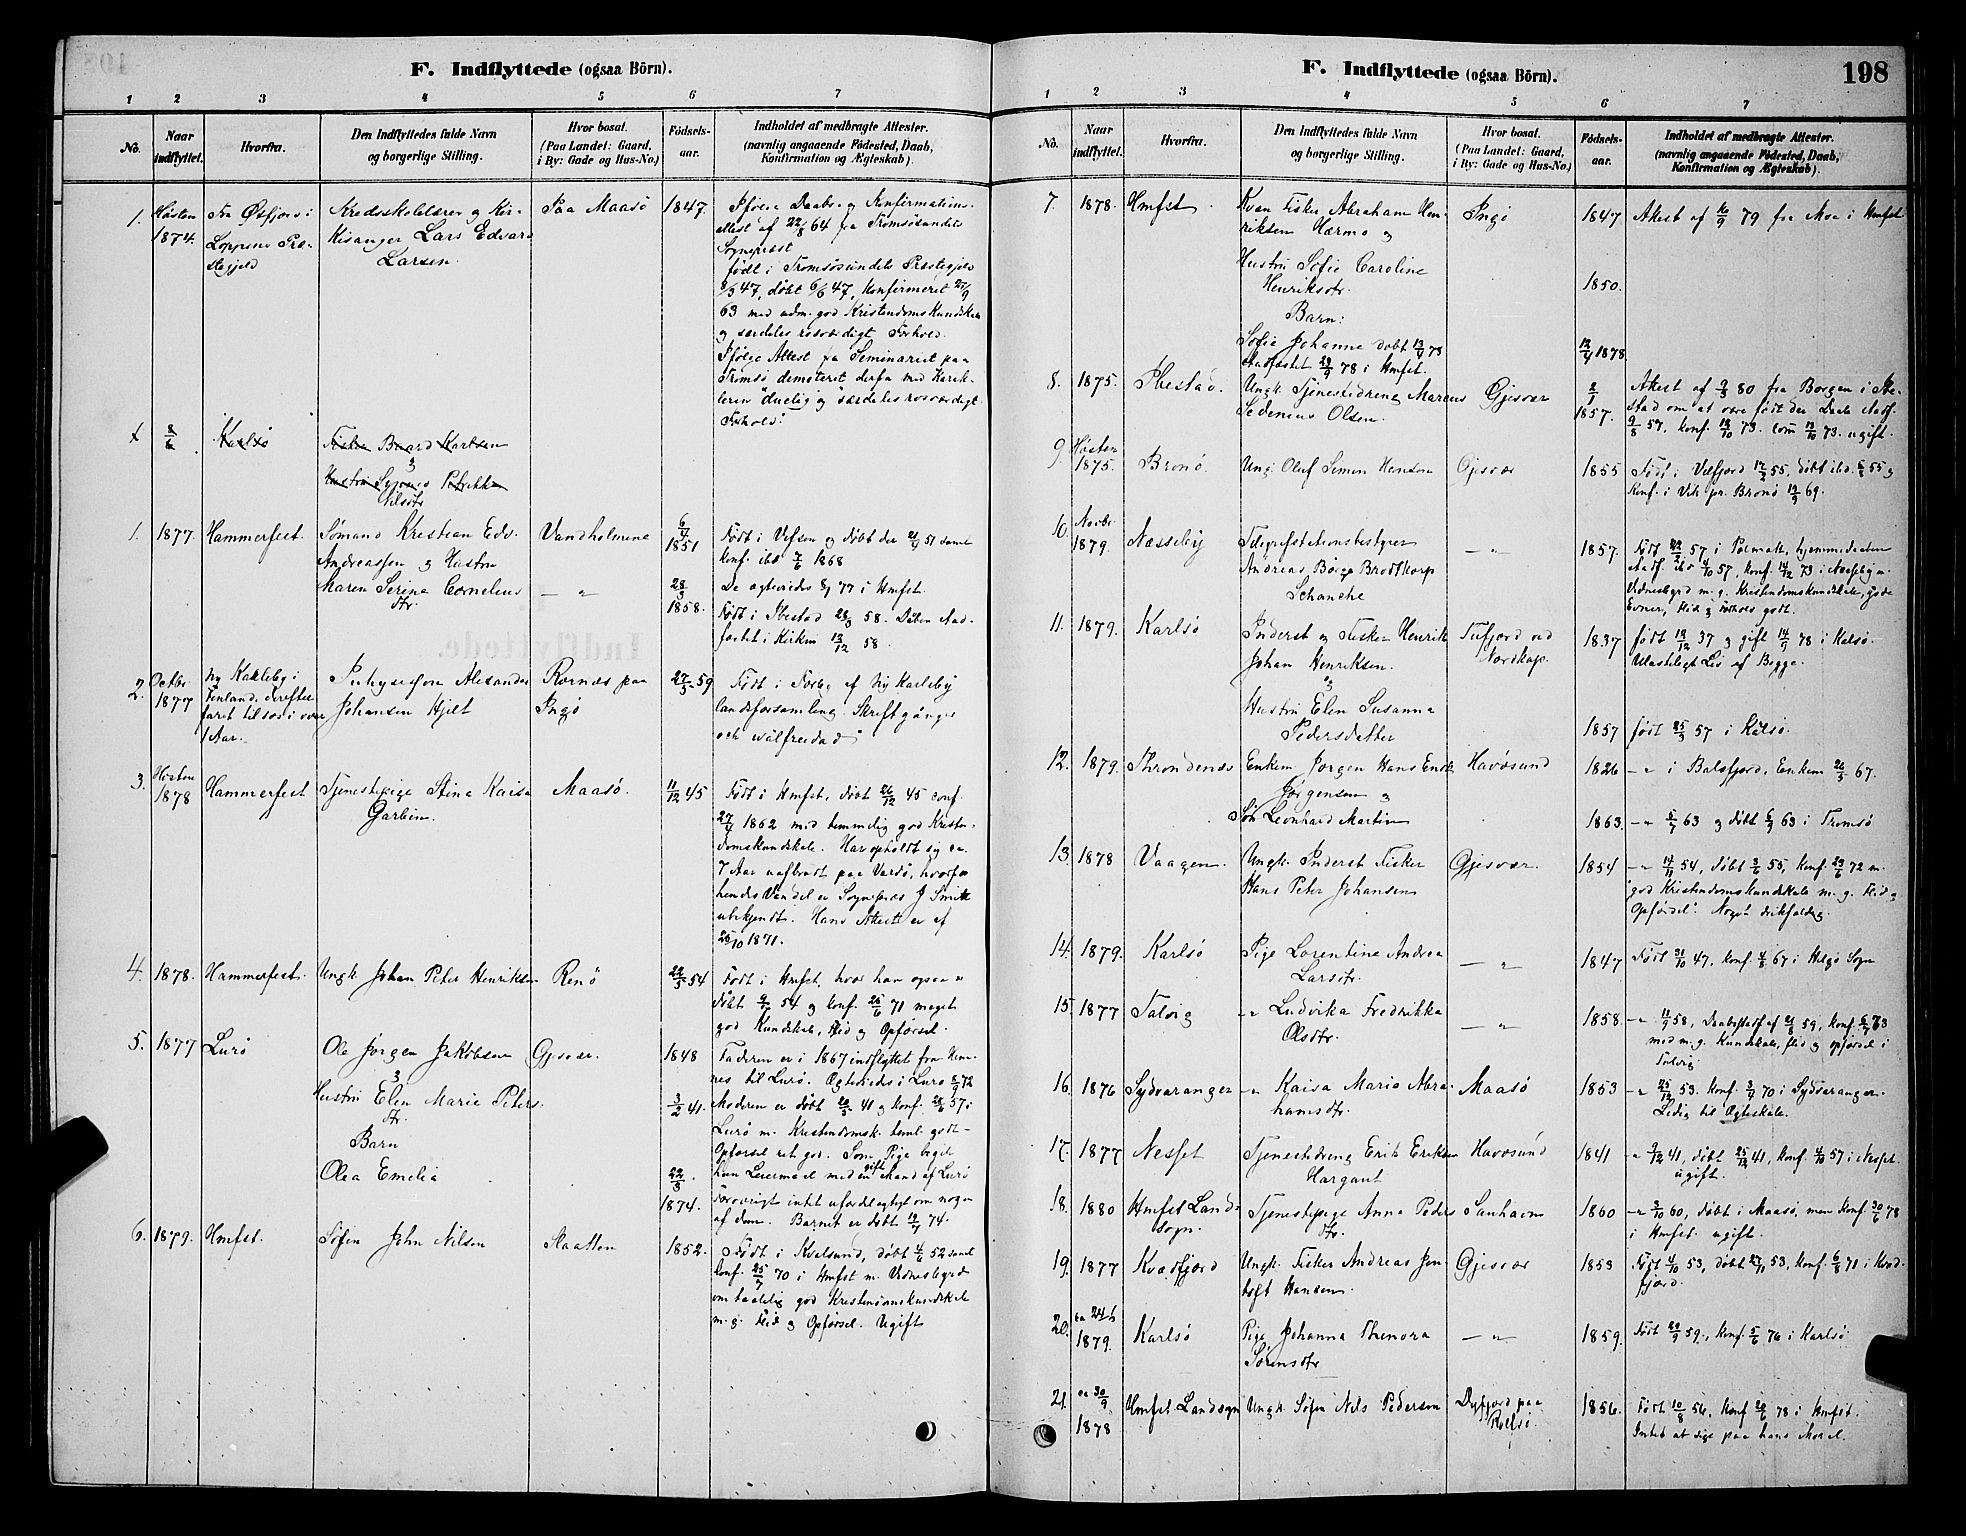 F. Indflyttede (ogsaa Börn).
1 2 3 4 5 6 7
No.
Naar indflyttet.
Hvorfra.
Den Indflyttedes fulde Navn
og borgerlige Stilling.
Hvor bosat.
(Paa Landet: Gaard,
i By: Gade og Hus-No.)
Födsels-
aar.
Indholdet af medbragte Attester.
(navnlig angaaende Födested, Daab,
Konfirmation og Ægteskab).
1. Høsten Fra Øxfjord i Kredsskolelærer og Kir- Paa Maasø 1847. Ifølge Daabs- og Konfirmations-
1874. Loppens Præ- kesanger Lars Edvard attest af 22/8 64 fra Tromsøsundets
stegjeld Larsen. Sognepræst
født i Tromsøsundets Præstegjeld
/3 47, døbt 6/6 47, konfirmeret 27/9
63 med udm. god Kristendomskundskab
og særdeles rosværdigt Forhold.
Ifølge Attest fra Seminariet paa
Tromsø demitteret derfra med Karak-
teren "duelig" og "særdeles rosværdigt
Forhold."
8/6 Karlsø Fisker Baard Karlsen
&
Hustru Petrikke
Nilsdtr
1. 1877. Hammerfest. Sømand Kristian Edv. Vandholmene 6/4 1851 Født i Vefsen og døbt der 21/9 51 samt
Andreassen og Hustru konf. ibd 7/6 1868
Maren Serine Cornelius- — " 28/3 1858. De ægteviedes 8/ 77 i Hmfst.
dtr. Født i Ibestad 28/3 58. Daben stad-
fæstet i Kirken 12/12 58.
2. Octbr. Ny Karleby i Alexander Rornæs paa 27/5 59 Født i Ny Karleby
1877 Finland, derefter Johansen Hjelt Ingø landsforsamling. Skriftgånger
faret tilsøs i over och
1 Aar.
3. Høsten Hammerfest Tjenestepige Stina Kaisa Maasø. 11/12 45 Født i Hmfst, døbt 26/12 45 conf.
1878 27/7 1862 med temmelig god Kristen-
domskundskab. Har opholdt sig ca.
7 Aar uafbrudt paa Vardø, hvorfor
hendes Vandel er Sognepræst J Smith
ubekjendt. Hans Attest er af
25/10 1871.
4. 1878. Hammerfest. Ungk. Johan Peter Henriksen Renø 22/3 54 Født i Hmfst, hvor han ogsaa er
døbt 54 og konf. 25/6 71 meget
god Kundskab, Flid og Opførsel.
5. 1877 Lurø Ole Jørgen Jakobsen Gjesvær. 1848 Faderen er i 1867 indflyttet fra Hem-
& nes til Lurø. Ægteviedes i Lurø 8/9 72
Hustru Elen Marie Peters- 3/2 41. Moderen er døbt 20/5 41 og konf. 57 i
dtr. Lurø m. Kristendomsk. teml. godt -
Barn Opførsel ret god. Som Pige begik
Olea Emelia 22/3 1874. hun Leiermaal med en gift Mand af Lurø
Forøvrigt intet ufordelagtigt om nogen
af dem. Barnet er døbt 12/7 74.
6. 1879. Hmfst. Søfin John Nilsen Staatten 1852. Født i Kvalsund, døbt 4/6 52 samt
konf. 25/9 70 i Hmfst m. Vidnesbyrd
om taalelig god Kristendomskundskab
m. g. Flid og Opførsel. Ugift
F. Indflyttede (ogsaa Börn).
198
1 2 3 4 5 6 7
No.
Naar indflyttet.
Hvorfra.
Den Indflyttedes fulde Navn
og borgerlige Stilling.
Hvor bosat.
(Paa Landet: Gaard,
i By: Gade og Hus-No.)
Födsels-
aar.
Indholdet af medbragte Attester.
(navnlig angaaende Födested, Daab,
Konfirmation og Ægteskab).
7. 1878. Hmfst. Kvæn Fisker Abraham Hen- Ingø 1847. Attest af 16/9 79 fra Moe i Hmfst
riksen Hærmo og
Hustru Sofie Caroline
Henriksdtr. 1850.
Barn:
Sofie Johanne døbt 13/9 78 12/4 1878.
stadfæstet 29/9 78 i Hmfst.
8. 1875. Ibestad. Ungk. Tjenestedreng Marcus Gjesvær 8/1 1857. Attest af 9/3 80 fra Borgen i Ibe-
Sedenius Olsen. stad om at være født der. Daab stadf.
9/8 57, konf. 12/10 73. Com 19/10 73. ugift.
9. Høsten 1875. Brønø. Ung. Oluf Simon Hansen Gjesvær 1855 Født i Velfjord 17/2 55, døbt ibd. 55 og
konf. i Vik pr. Brønø 19/9 69.
10. Novbr. 1879. Næsseby Telegrafstationsbestyrer — " — 1857. Født 22/2 57 i Polmak, hjemmedaaben
Andreas Børge Brodtkorp stadf. ibd 4/10 57. Konf. 14/12 73 i Næsseby m.
Schanche Vidnesbyrd m. g. Kristendomskundskab, gode
Evner, Flid og Forhold godt.
11. 1879. Karlsø Inderst og Fisker Henrik Tufjord ved 1837 født 12/12 37 og gift 14/9 78 i Kalsø.
Johan Henriksen. Nordkap. Ulasteligt Liv af Begge.
&
Hustru Elen Susanna
Pedersdatter 1857 født 25/3 57 i Kalsø.
12. 1879. Throndenæs Enkem. Jørgen Hans Havøsund 1826 — " i Balsfjord. Enkem 26/5 67.
Jørgensen og
Søn Leonhard Martin 1863. — " 5/7 63 og døbt 6/9 63 i Tromsø
13. 1878 Vaagen. Ungk. Inderst Fisker Gjesvær. 1854 — " 14/11 54, døbt 3/6 55, konf. 23/6 72 m.
Hans Peter Johansen god Kristendomskundskab m. g. Flid og
Opførsel. Noget drikfældig.
14. 1879. Karlsø Pige Lorentine Andrea — " 1847 Født 31/10 47, konf. 4/8 67 i Helgø Sogn
Larsdtr.
15. 1877 Talvig — " Ludvika Fredrikka — " 1858. — " 11/9 58, Daabstadf af 21/8 59, konf. 73
Olsdtr. med m. g. Kundskab, flid og opførsel i
Talvig
16. 1876 Sydvaranger — " Kaisa Maria Abra- Maasø 1853 — " 25/12 53. konf. 3/7 70 i Sydvaranger.
hamsdtr. Ledig til Ægteskab.
17. 1877 Nesset Tjenestedreng Erik Eriksen Havøsund 1841 — " 9/12 41, døbt 25/12 41, konf. 4/10 57 i Nesset.
Hargaut ugift.
18. 1880 Hmfst Lands- Tjenestepige Anna Peders- Sanhavn 1860 — " 2/10 60, døbt i Maasø, men konf. 30/6 78
sogn. dtr. i Hmfst. ugift.
19. 1877 Kvædfjord Ungk. Fisker Andreas Jen- Gjesvær 1853 Født 4/10 53, døbt 27/11 53, konf. 6/8 71 i Kvæd-
toft Hansen. fjord.
20. ca 24/6 1879. Karlsø Pige Johanna Thenora — " 1859. Født 20/9 59, konf. 5/6 76 i Karlsø
Sørensdtr
21. ca 30/9 1878 Hmfst Landsogn Ungk. Søfin Nils Pedersen Dyfjord paa 1856. Født 10/8 56, konf 20/6 78 i Hmfst.
Rolfsø Intet at sige paa hans Moral.